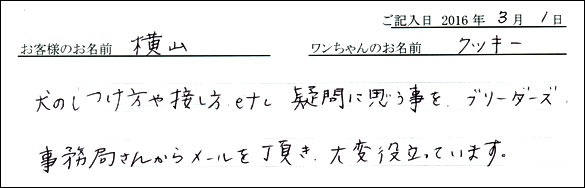 ご記入日 2016 年 3 月 1 日
お客様のお名前 横山 ワンちゃんのお名前 クッキー
犬のしつけ方や接し方、etc 疑問に思う事を、ブリーダーズ
事務局さんからメールを頂き、大変役立っています。